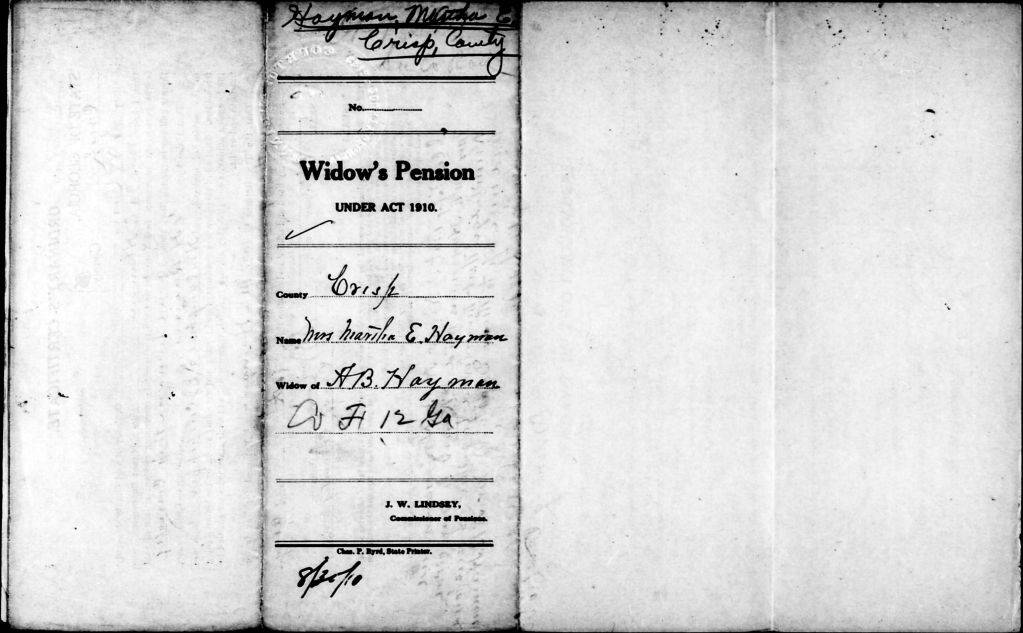 Hayman, Martha E
Crisp, County
No.
Widow's Pension
UNDER ACT 1910.
County Crisp
Name Mrs Martha E. Hayman
Widow of A B. Hayman
F 12 Ga
J. W. LINDSEY,
Commissioner of Pensions.
Chas. P. Byrd, State Printer.